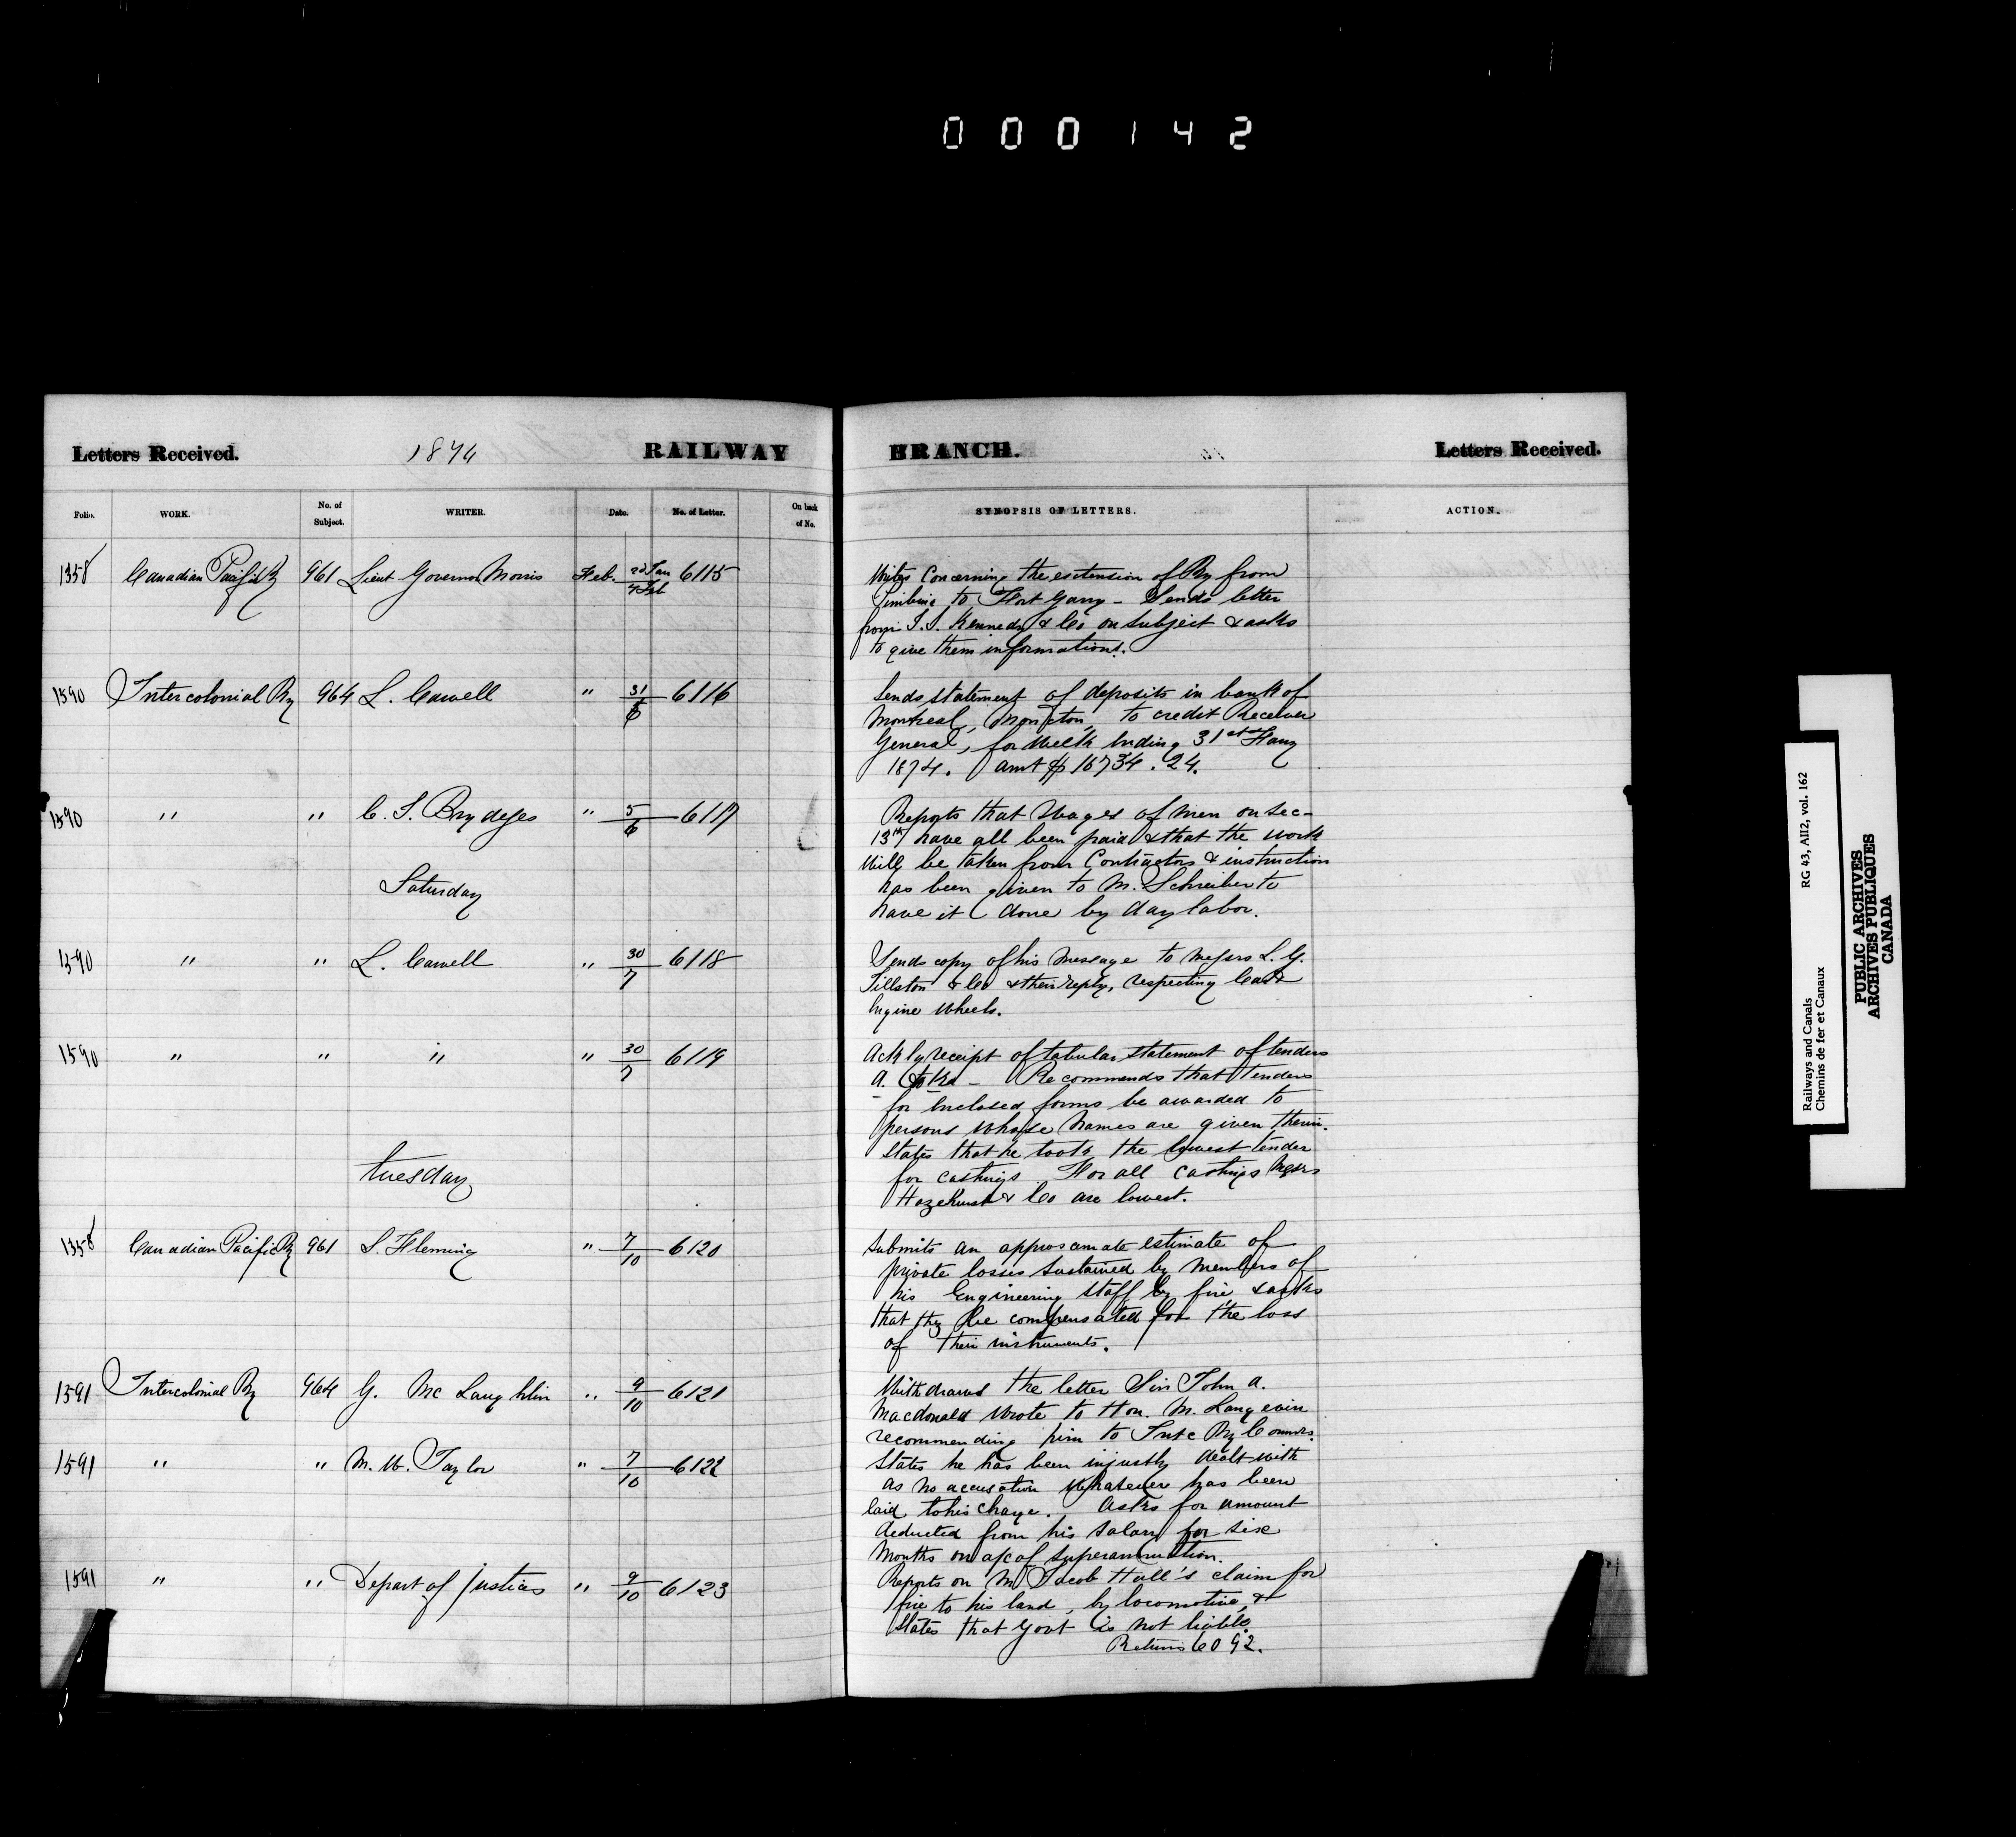 0 0 0 1 4 2
Letters Received. 1874 RAILWAY BRANCH. Letters Received.
Folio. WORK. No. of Subject. WRITER. Date. No. of Letter. On back of No. SYNOPSIS OF LETTERS. ACTION.
1358 Canadian Pacific Ry 961 Lieut Governor Morris Feb. 22 Jan / 4 Feb 6115
Writes Concerning the extension of Ry from
Pimbina to Fort Garry - Sends letter
from J. S. Kennedy & Co on subject & asks
to give them informations.
1590 Intercolonial Ry 964 L. Carvell " 31/6 6116
Sends statement of deposits in bank of
Montreal, Moncton, to credit Receiver
General, for Week Ending 31st Jany
1874. amt $16734.24.
1590 " " C. J. Brydges " 5/6 6117
Reports that Wages of men on Sec-
13th have all been paid & that the work
Will be taken from Contractors & instruction
has been given to M. Schreiber to
have it done by day labor.
Saturday
1590 " " L. Carvell " 30/7 6118
Sends copy of his message to Messrs L. G.
Tillston & Co & their reply, respecting Cast
Engine Wheels.
1590 " " " " 30/7 6119
Ackly receipt of tabular statement of tenders
A. to - Recommends that tenders
for Enclosed forms be awarded to
persons whose Names are given therin.
States that he took the lowest tender
for castings. For all castings Messrs
Hazehurst & Co are lowest.
Tuesday
1358 Canadian Pacific Ry 961 S. Fleming " 7/10 6120
Submits an approxamate estimate of
private losses sustained by Members of
his Engineering Staff by fire & asks
that they be compensated for the loss
of their instruments.
1591 Intercolonial Ry 964 G. Mc Laughlin " 9/10 6121
Withdraws the letter Sir John A.
Macdonald Wrote to Hon. M. Langevin
recommending him to Intc Ry Commrs.
1591 " " M. W. Taylor " 7/10 6122
States he has been injustly dealt with
as No accusation Whatever has been
laid to his charge. Asks for amount
deducted from his Salary for six
Months on a/c of Superannuation.
1591 " " Depart of Justices " 9/10 6123
Reports on M Jacob Hall's claim for
fire to his land, by locomotive, &
States that Govt is not liable.
Returns 6092.
Railways and Canals RG 43, AII2, vol. 162
Chemins de fer et Canaux
PUBLIC ARCHIVES
ARCHIVES PUBLIQUES
CANADA